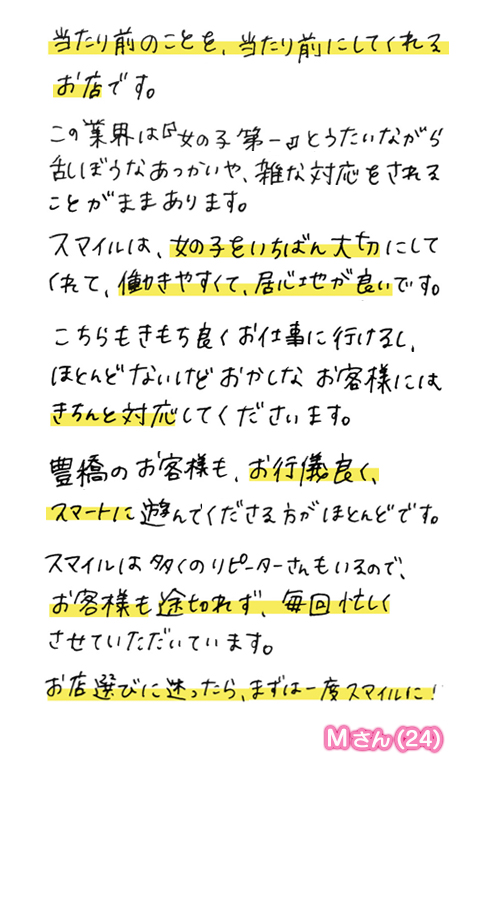 当たり前のことを、当たり前にしてくれる
お店です。
この業界は『女の子第一』とうたいながら
乱ぼうなあつかいや、雑な対応をされる
ことがままあります。
スマイルは、女の子をいちばん大切にして
くれて、働きやすくて、居心地が良いです。
こちらもきもち良くお仕事に行けるし、
ほとんどないけどおかしなお客様には
きちんと対応してくださいます。
豊橋のお客様も、お行儀良く、
スマートに遊んでくださる方がほとんどです。
スマイルは多くのリピーターさんもいるので、
お客様も途切れず、毎回忙しく
させていただいています。
お店選びに迷ったら、まずは一度スマイルに!
Mさん(24)